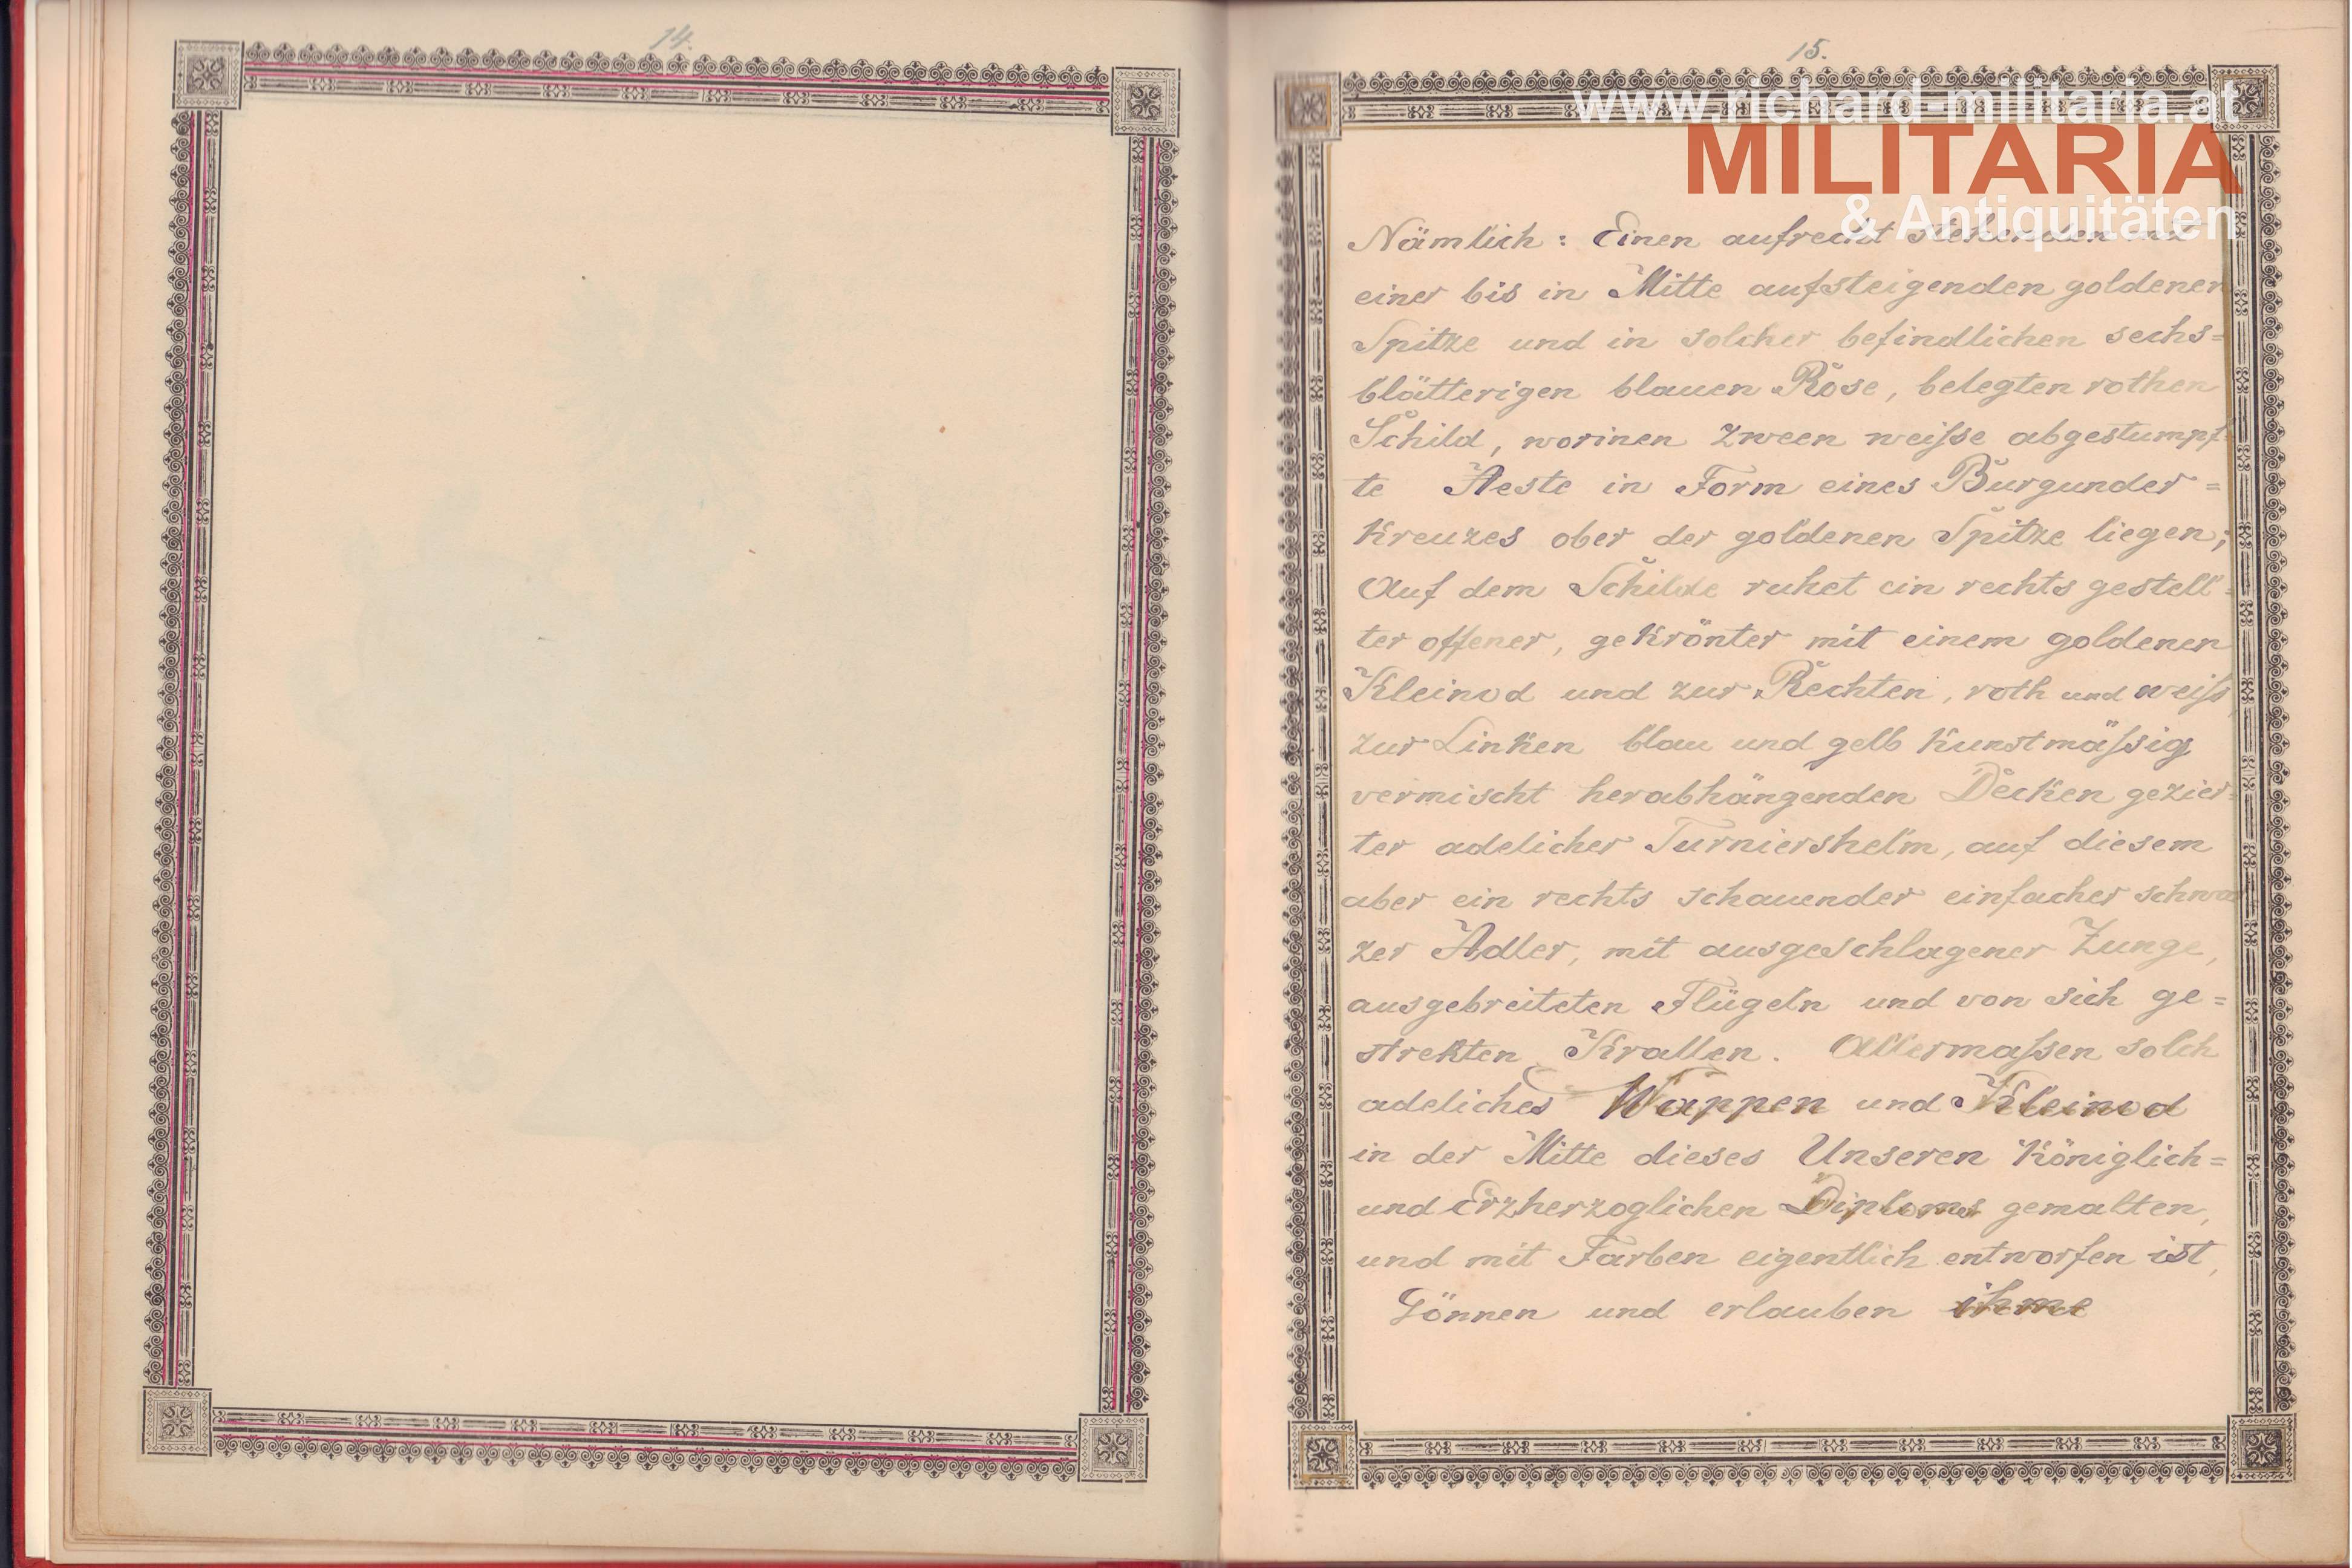 14.
15.
www.richard-militaria.at
MILITARIA
& Antiquitäten
Nämlich: Einen aufrecht stehenden mit
einer bis in Mitte aufsteigenden goldenen
Spitze und in solcher befindlichen sechs=
blätterigen blauen Rose, belegten rothen
Schild, worinen zween weiſse abgestumpf=
te Aeste in Form eines Burgunder=
Kreuzes ober der goldenen Spitze liegen;
Auf dem Schilde ruhet ein rechts gestell=
ter offener, gekrönter mit einem goldenen
Kleinod und zur Rechten, roth und weiſs,
zur Linken blau und gelb kunstmäſsig
vermischt herabhängenden Decken gezier=
ter adelicher Turniershelm, auf diesem
aber ein rechts schauender einfacher schwar
zer Adler, mit ausgeschlagener Zunge,
ausgebreiteten Flügeln und von sich ge=
strekten Krallen. Allermaſsen solch
adeliches Wappen und Kleinod
in der Mitte dieses Unseren Königlich=
und Erzherzoglichen Diploms gemalten,
und mit Farben eigentlich entworfen ist,
Gönnen und erlauben ihme